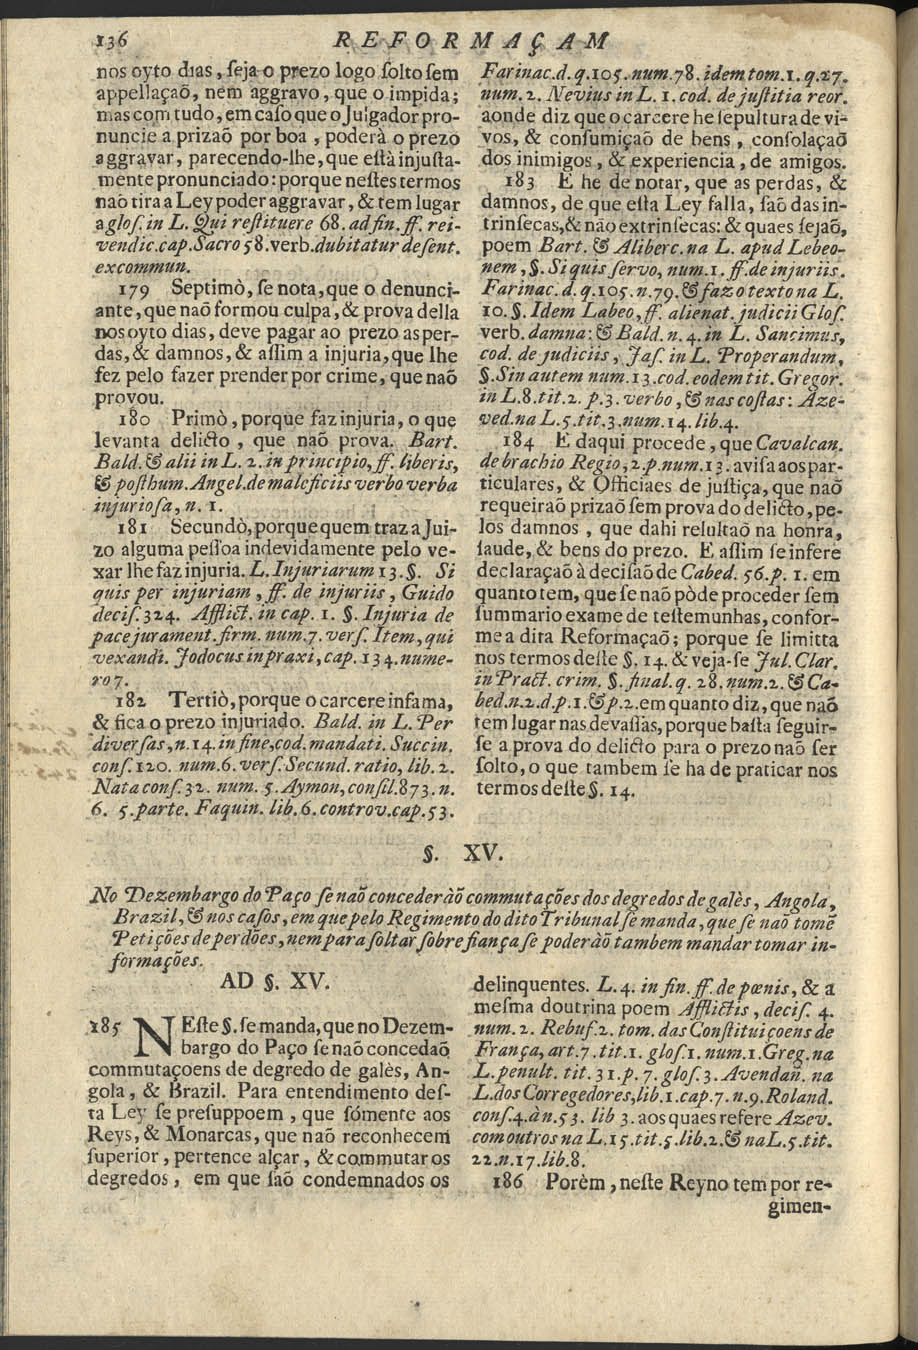 136 REFORMAÇAM
nos oyto dias, ſeja o prezo logo ſolto ſem
appellaçaõ, nem aggravo, que o impida;
mas com tudo, em caſo que o Julgador pro-
nuncie a prizaõ por boa, poderà o prezo
aggravar, parecendo-lhe, que eſtà injuſta-
mente pronunciado: porque neſtes termos
naõ tira a Ley poder aggravar, & tem lugar
a gloſ. in L. Qui reſtituere 68. ad fin. ff. rei-
vendic. cap. Sacro 58. verb. dubitatur de ſent.
excommun.
179 Septimò, ſe nota, que o denunci-
ante, que naõ formou culpa, & prova della
nos oyto dias, deve pagar ao prezo as per-
das, & damnos, & aſſim a injuria, que lhe
fez pelo fazer prender por crime, que naõ
provou.
180 Primò, porque faz injuria, o que
levanta delicto, que naõ prova. Bart.
Bald. & alii in L. 2. in principio, ff. liberis,
& poſthum. Angel. de maleficiis verbo verba
injurioſa, n. 1.
181 Secundò, porque quem traz a Jui-
zo alguma peſſoa indevidamente pelo ve-
xar lhe faz injuria. L. Injuriarum 13. §. Si
quis per injuriam, ff. de injuriis, Guido
deciſ. 324. Afflict. in cap. 1. §. Injuria de
pace jurament. firm. num. 7. verſ. Item, qui
vexandi. Jodocus in praxi, cap. 134. nume-
ro 7.
182 Tertiò, porque o carcere infama,
& fica o prezo injuriado. Bald. in L. Per
diverſas, n. 14. in fine, cod. mandati. Succin.
conſ. 120. num. 6. verſ. Secund. ratio, lib. 2.
Nata conſ. 32. num. 5. Aymon, conſil. 873. n.
6. 5. parte. Faquin. lib. 6. controv. cap. 53.
Farinac. d. q. 105. num. 78. idem tom. 1. q. 27.
num. 2. Nevius in L. 1. cod. de juſtitia reor.
aonde diz que o carcere he ſepultura de vi-
vos, & conſumiçaõ de bens, conſolaçaõ
dos inimigos, & experiencia, de amigos.
183 E he de notar, que as perdas, &
damnos, de que eſta Ley falla, ſaõ das in-
trinſecas, & não extrinſecas: & quaes ſejaõ,
poem Bart. & Aliberc. na L. apud Lebeo-
nem, §. Si quis ſervo, num. 1. ff. de injuriis.
Farinac. d. q. 105. n. 79. & faz o texto na L.
10. §. Idem Labeo, ff. alienat. judicii Gloſ.
verb. damna: & Bald. n. 4. in L. Sancimus,
cod. de judiciis, Jaſ. in L. Properandum,
§. Sin autem num. 13. cod. eodem tit. Gregor.
in L. 8. tit. 2. p. 3. verbo, & nas coſtas: Aze-
ved. na L. 5. tit. 3. num. 14. lib. 4.
184 E daqui procede, que Cavalcan.
de brachio Regio, 2. p. num. 13. aviſa aos par-
ticulares, & Officiaes de juſtiça, que naõ
requeiraõ prizaõ ſem prova do delicto, pe-
los damnos, que dahi reſultaõ na honra,
ſaude, & bens do prezo. E aſſim ſe infere
declaraçaõ à deciſaõ de Cabed. 56. p. 1. em
quanto tem, que ſe naõ pòde proceder ſem
ſummario exame de teſtemunhas, confor-
me a dita Reformaçaõ; porque ſe limitta
nos termos deſte §. 14. & veja-ſe Jul. Clar.
in Pract. crim. §. final. q. 28. num. 2. & Ca-
bed. n. 2. d. p. 1. & p. 2. em quanto diz, que naõ
tem lugar nas devaſſas, porque baſta ſeguir-
ſe a prova do delicto para o prezo naõ ſer
ſolto, o que tambem ſe ha de praticar nos
termos deſte §. 14.
§. XV.
No Dezembargo do Paço ſe naõ concederàõ commutações dos degredos de galès, Angola,
Brazil, & nos caſos, em que pelo Regimento do dito Tribunal ſe manda, que ſe naõ tomẽ
Petições de perdões, nem para ſoltar ſobre fiança ſe poderàõ tambem mandar tomar in-
formações.
AD §. XV.
185 NEſte §. ſe manda, que no Dezem-
bargo do Paço ſe naõ concedaõ
commutaçoens de degredo de galès, An-
gola, & Brazil. Para entendimento deſ-
ta Ley ſe preſuppoem, que sómente aos
Reys, & Monarcas, que naõ reconhecem
ſuperior, pertence alçar, & commutar os
degredos, em que ſaõ condemnados os
delinquentes. L. 4. in fin. ff. de pœnis, & a
meſma doutrina poem Afflictis, deciſ. 4.
num. 2. Rebuf. 2. tom. das Conſtituiçoens de
França, art. 7. tit. 1. gloſ. 1. num. 1. Greg. na
L. penult. tit. 31. p. 7. gloſ. 3. Avendañ. na
L. dos Corregedores, lib. 1. cap. 7. n. 9. Roland.
conſ. 4. àn. 53. lib 3. aos quaes refere Azev.
com outros na L. 15. tit. 5. lib. 2. & na L. 5. tit.
22. n. 17. lib. 8.
186 Porèm, neſte Reyno tem por re-
gimen-